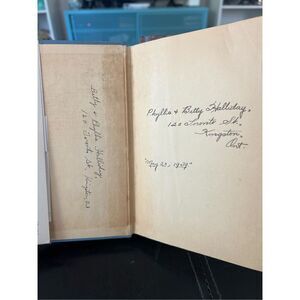 Betty & Phyllis Halliday,
120 Toronto St., Kingston, Ont.
Phyllis & Betty Halliday,
120 Toronto St.
Kingston,
Ont.